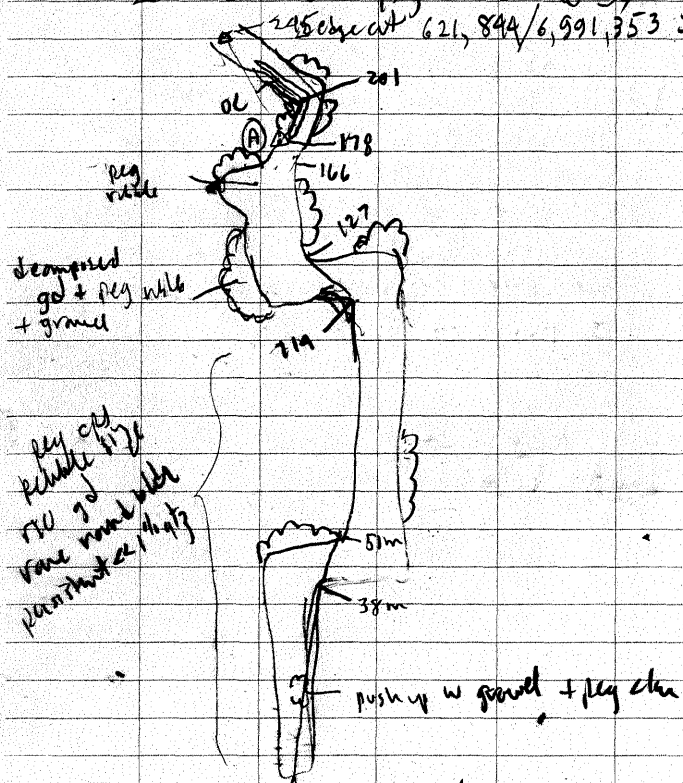 245 edge cut 621,844/6,991,353
201
OC
A
178
166
peg
rubble
127
decomposed
gd + peg rubble
+ gravel
119
peg
pebble size
no gd
rare round
51m
38m
push up w gravel + peg